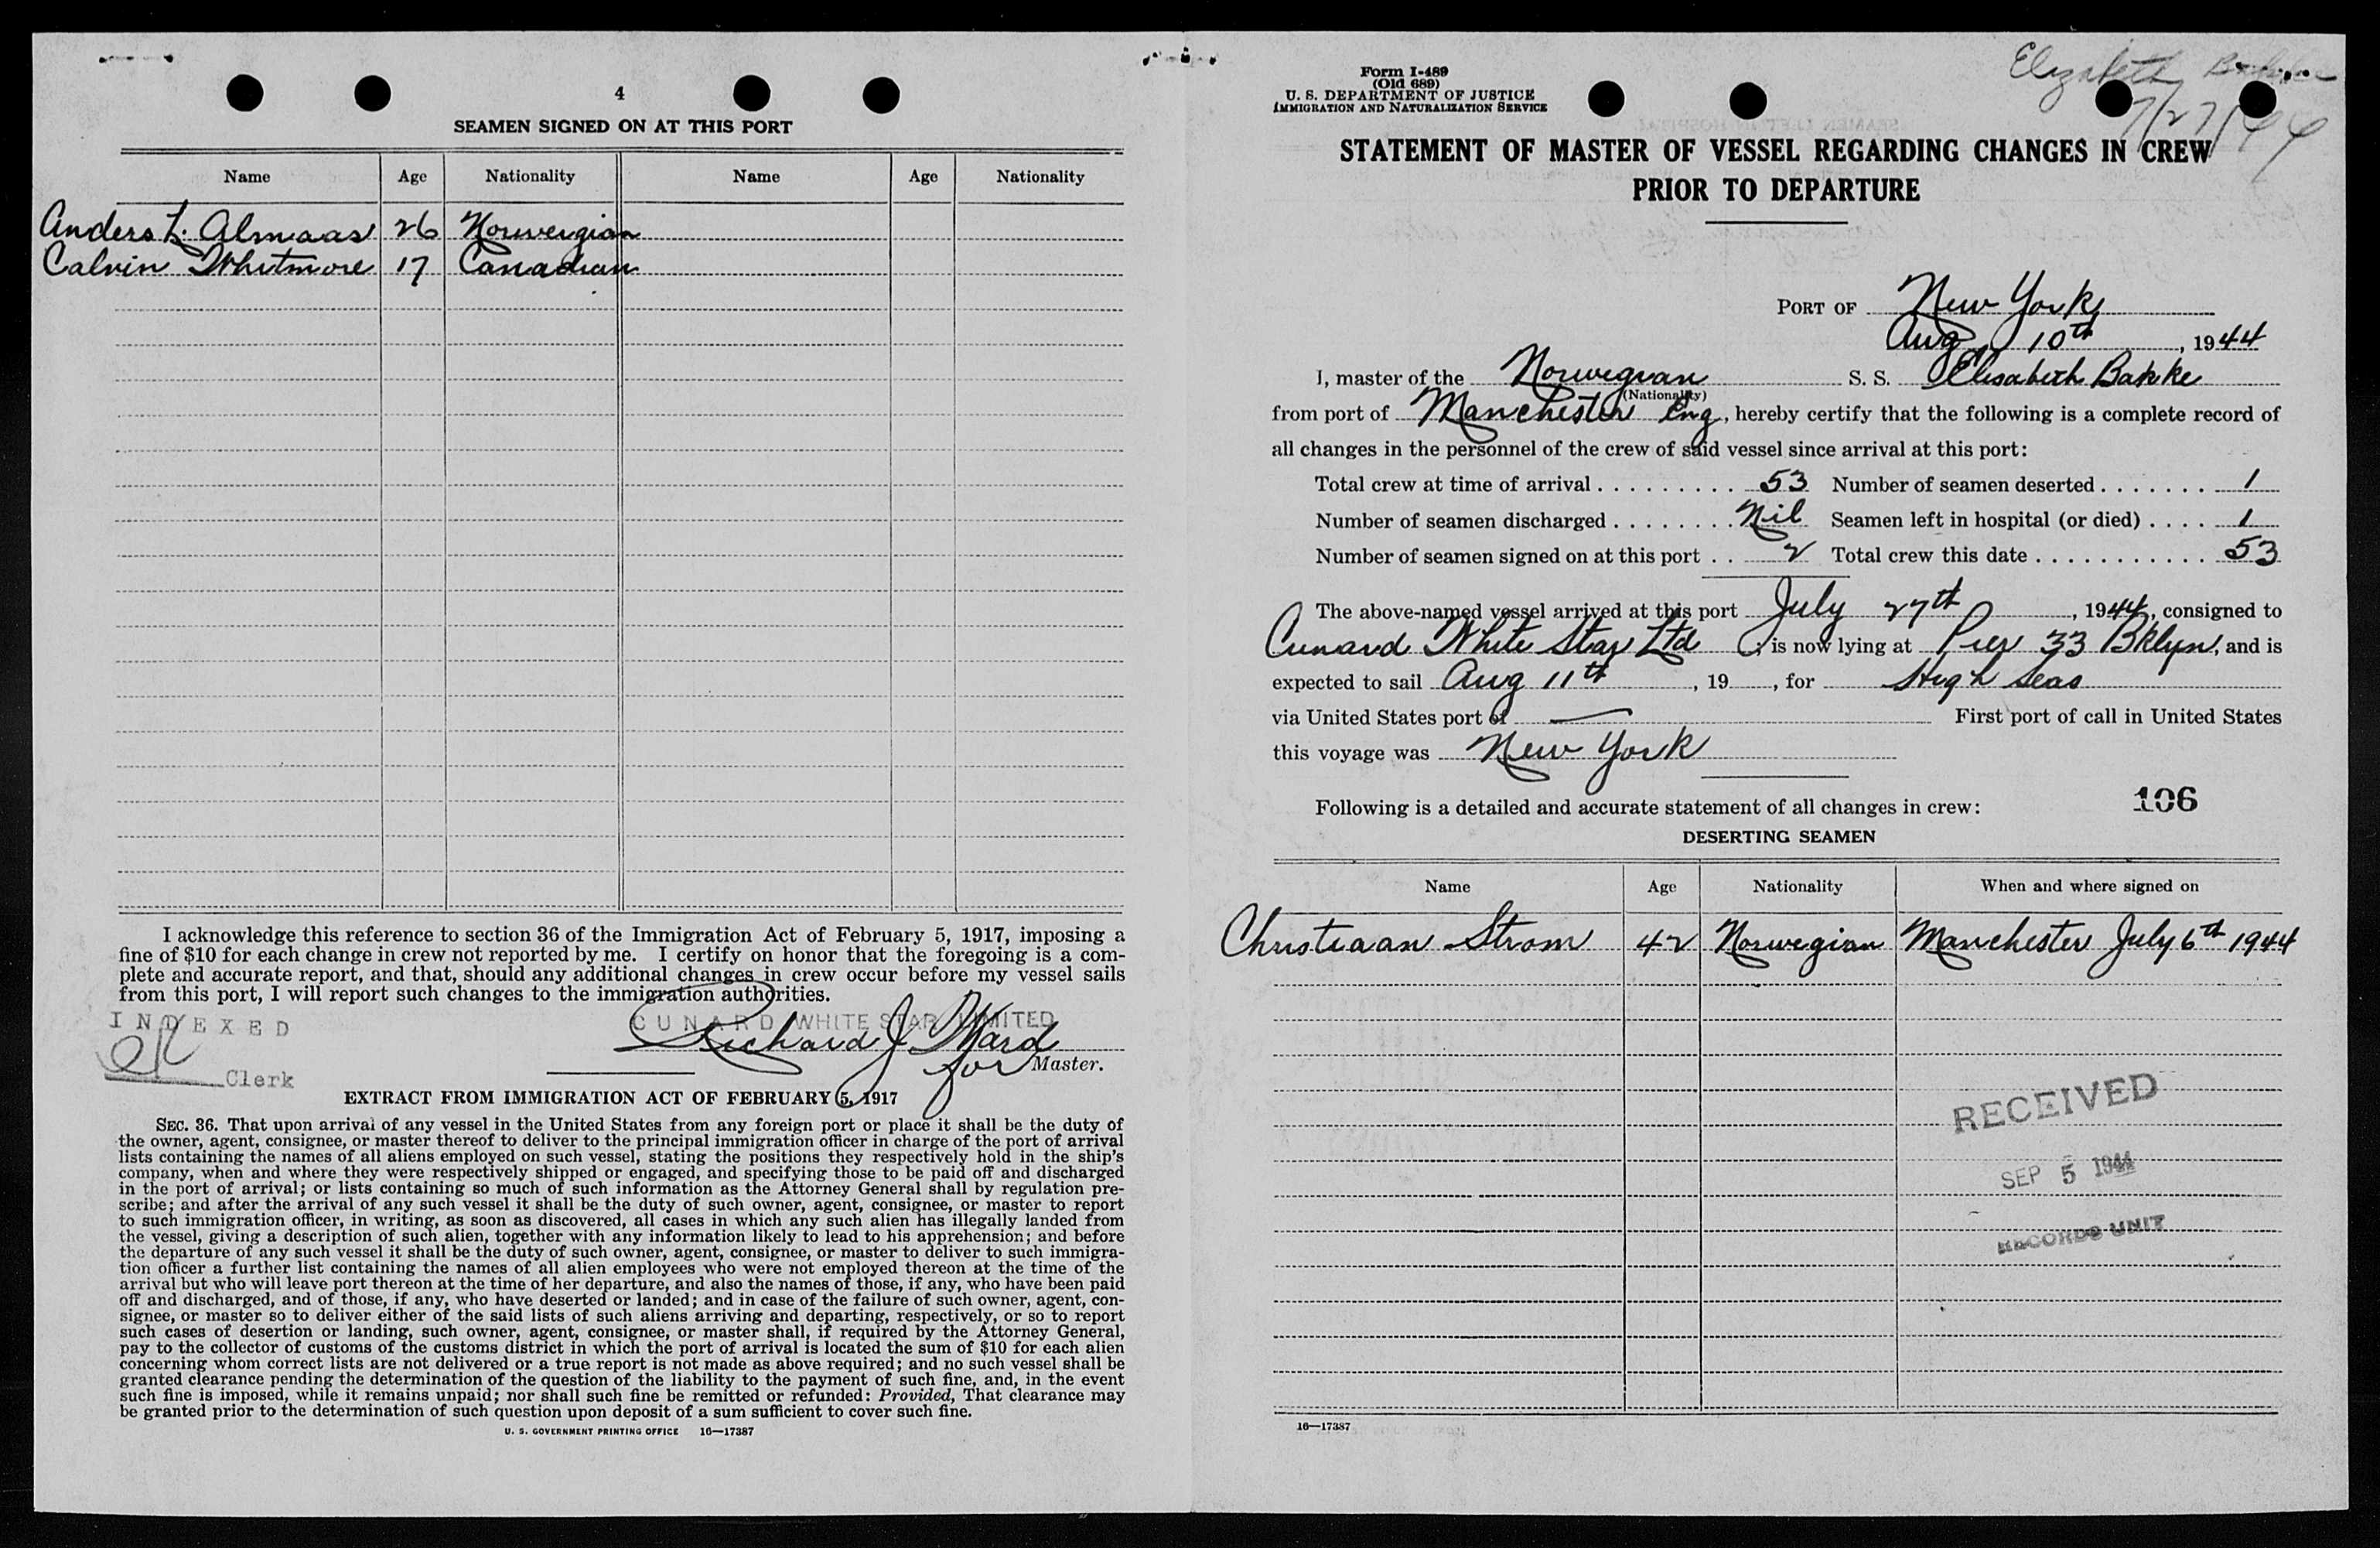 4
SEAMEN SIGNED ON AT THIS PORT
Name Age Nationality Name Age Nationality
Anders L. Almaas 26 Norwegian
Calvin Whitmore 17 Canadian
I acknowledge this reference to section 36 of the Immigration Act of February 5, 1917, imposing a
fine of $10 for each change in crew not reported by me. I certify on honor that the foregoing is a com-
plete and accurate report, and that, should any additional changes in crew occur before my vessel sails
from this port, I will report such changes to the immigration authorities.
INDEXED
CUNARD WHITE STAR LIMITED
Richard J Ward
for Master.
Clerk
EXTRACT FROM IMMIGRATION ACT OF FEBRUARY 5, 1917
SEC. 36. That upon arrival of any vessel in the United States from any foreign port or place it shall be the duty of
the owner, agent, consignee, or master thereof to deliver to the principal immigration officer in charge of the port of arrival
lists containing the names of all aliens employed on such vessel, stating the positions they respectively hold in the ship's
company, when and where they were respectively shipped or engaged, and specifying those to be paid off and discharged
in the port of arrival; or lists containing so much of such information as the Attorney General shall by regulation pre-
scribe; and after the arrival of any such vessel it shall be the duty of such owner, agent, consignee, or master to report
to such immigration officer, in writing, as soon as discovered, all cases in which any such alien has illegally landed from
the vessel, giving a description of such alien, together with any information likely to lead to his apprehension; and before
the departure of any such vessel it shall be the duty of such owner, agent, consignee, or master to deliver to such immigra-
tion officer a further list containing the names of all alien employees who were not employed thereon at the time of the
arrival but who will leave port thereon at the time of her departure, and also the names of those, if any, who have been paid
off and discharged, and of those, if any, who have deserted or landed; and in case of the failure of such owner, agent, con-
signee, or master so to deliver either of the said lists of such aliens arriving and departing, respectively, or so to report
such cases of desertion or landing, such owner, agent, consignee, or master shall, if required by the Attorney General,
pay to the collector of customs of the customs district in which the port of arrival is located the sum of $10 for each alien
concerning whom correct lists are not delivered or a true report is not made as above required; and no such vessel shall be
granted clearance pending the determination of the question of the liability to the payment of such fine, and, in the event
such fine is imposed, while it remains unpaid; nor shall such fine be remitted or refunded: Provided, That clearance may
be granted prior to the determination of such question upon deposit of a sum sufficient to cover such fine.
U. S. GOVERNMENT PRINTING OFFICE 16—17387
Form I-489
(Old 689)
U. S. DEPARTMENT OF JUSTICE
IMMIGRATION AND NATURALIZATION SERVICE
Elizabeth
7/27/44
STATEMENT OF MASTER OF VESSEL REGARDING CHANGES IN CREW
PRIOR TO DEPARTURE
PORT OF New York
Aug 10th, 1944
I, master of the Norwegian S. S. Elisabeth Bakke
(Nationality)
from port of Manchester Eng, hereby certify that the following is a complete record of
all changes in the personnel of the crew of said vessel since arrival at this port:
Total crew at time of arrival . . . . . . . . . . 53 Number of seamen deserted . . . . . . . 1
Number of seamen discharged . . . . . . . . Nil Seamen left in hospital (or died) . . . . 1
Number of seamen signed on at this port . . 2 Total crew this date . . . . . . . . . . . . 53
The above-named vessel arrived at this port July 27th, 1944, consigned to
Cunard White Star Ltd, is now lying at Pier 33 Bklyn, and is
expected to sail Aug 11th, 19 , for High Seas
via United States port of — First port of call in United States
this voyage was New York
Following is a detailed and accurate statement of all changes in crew: 106
DESERTING SEAMEN
Name Age Nationality When and where signed on
Christiaan Strom 42 Norwegian Manchester July 6th 1944
RECEIVED
SEP 5 1944
RECORDS UNIT
16—17387